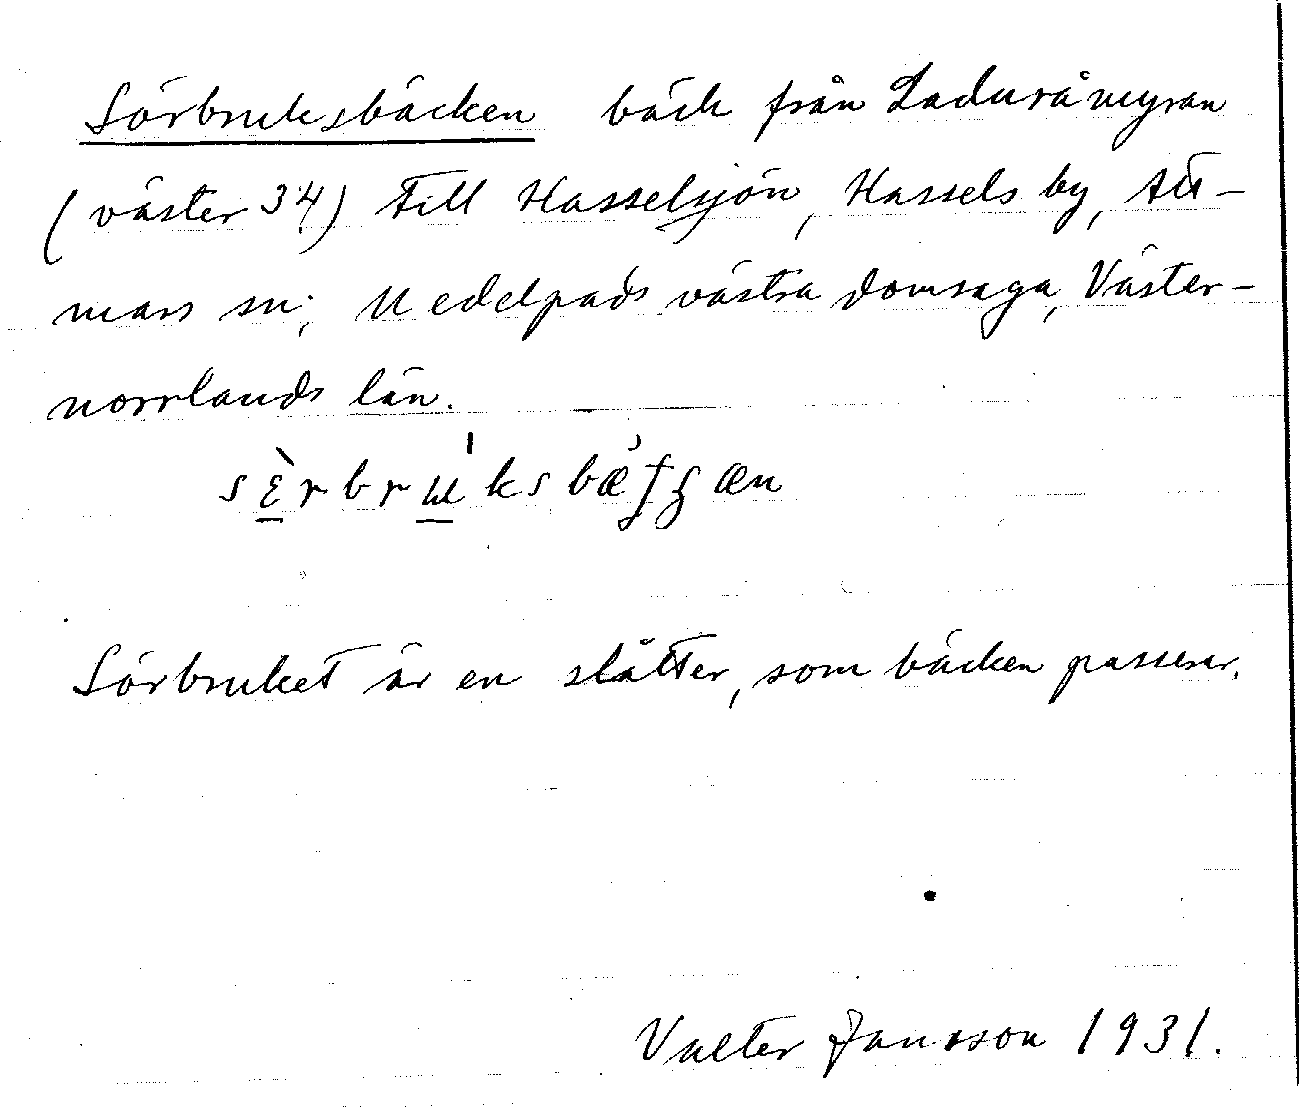 Sörbruksbäcken bäck från Laduråmyran
(väster 34) till Hasselsjön, Hassels by, Att-
mars sn; Medelpads västra domsaga, Väster-
norrlands län.
sɛ̀rbrɯ́ksbæʃʒæn
Sörbruket är en slåtter, som bäcken passerar.
Valter Jansson 1931.